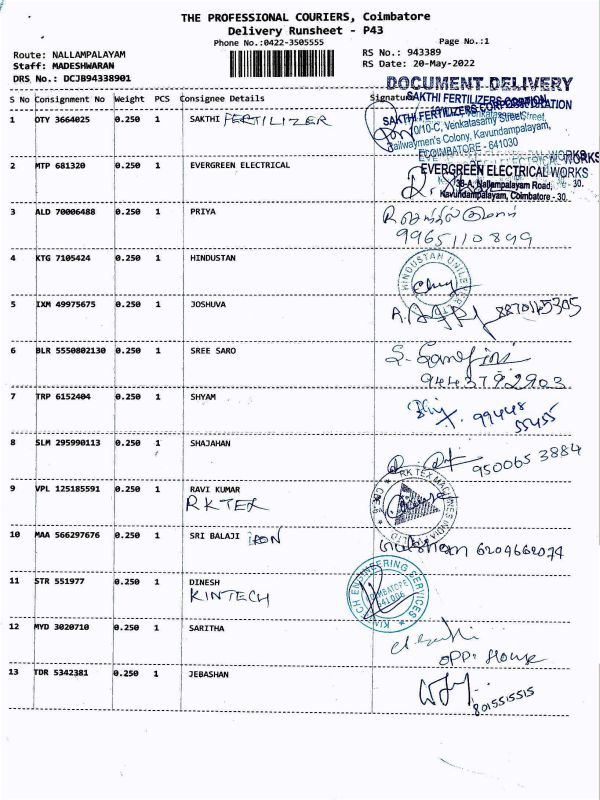 THE PROFESSIONAL COURIERS, Coimbatore
Delivery Runsheet - P43
Phone No.:0422-3505555
Page No.:1
Route: NALLAMPALAYAM
RS No.: 943389
Staff: MADESHWARAN
RS Date: 20-May-2022
DRS No.: DCJB94338901
DOCUMENT DELIVERY
S No Consignment No Weight PCS Consignee Details Signature
1 OTY 3664025 0.250 1 SAKTHI FERTILIZER
SAKTHI FERTILIZERS CORPORATION
10/10-C, Venkatasamy Street,
Railwaymen's Colony, Kavundampalayam,
COIMBATORE - 641030
2 MTP 681320 0.250 1 EVERGREEN ELECTRICAL
EVERGREEN ELECTRICAL WORKS
Nallampalayam Road,
Kavundampalayam, Coimbatore - 30.
3 ALD 70006488 0.250 1 PRIYA
9965110899
4 KTG 7105424 0.250 1 HINDUSTAN
HINDUSTAN UNILEVER LTD
5 IXM 49975675 0.250 1 JOSHUVA
6 BLR 5550802130 0.250 1 SREE SARO
9443792903
7 TRP 6152404 0.250 1 SHYAM
99448
55455
8 SLM 295990113 0.250 1 SHAJAHAN
950065 3884
9 VPL 125185591 0.250 1 RAVI KUMAR
RK TEX
RK TEX MACHINES INDIA
10 MAA 566297676 0.250 1 SRI BALAJI IRON
6204662074
11 STR 551977 0.250 1 DINESH
KINTECH
KINTECH ENGINEERING SERVICES
COIMBATORE
641006
12 MYD 3020710 0.250 1 SARITHA
OPP: House
13 TDR 5342381 0.250 1 JEBASHAN
8015515515